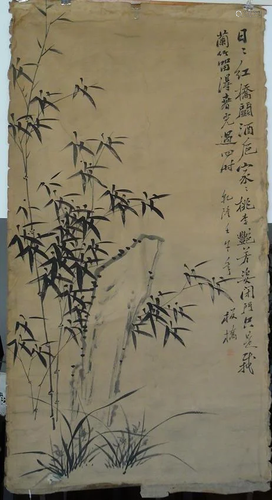 日〻紅橋鬪酒卮家〻桃李艷芳姿閉門只是栽
蘭竹畱得春光過四時
乾隆壬午年
板橋